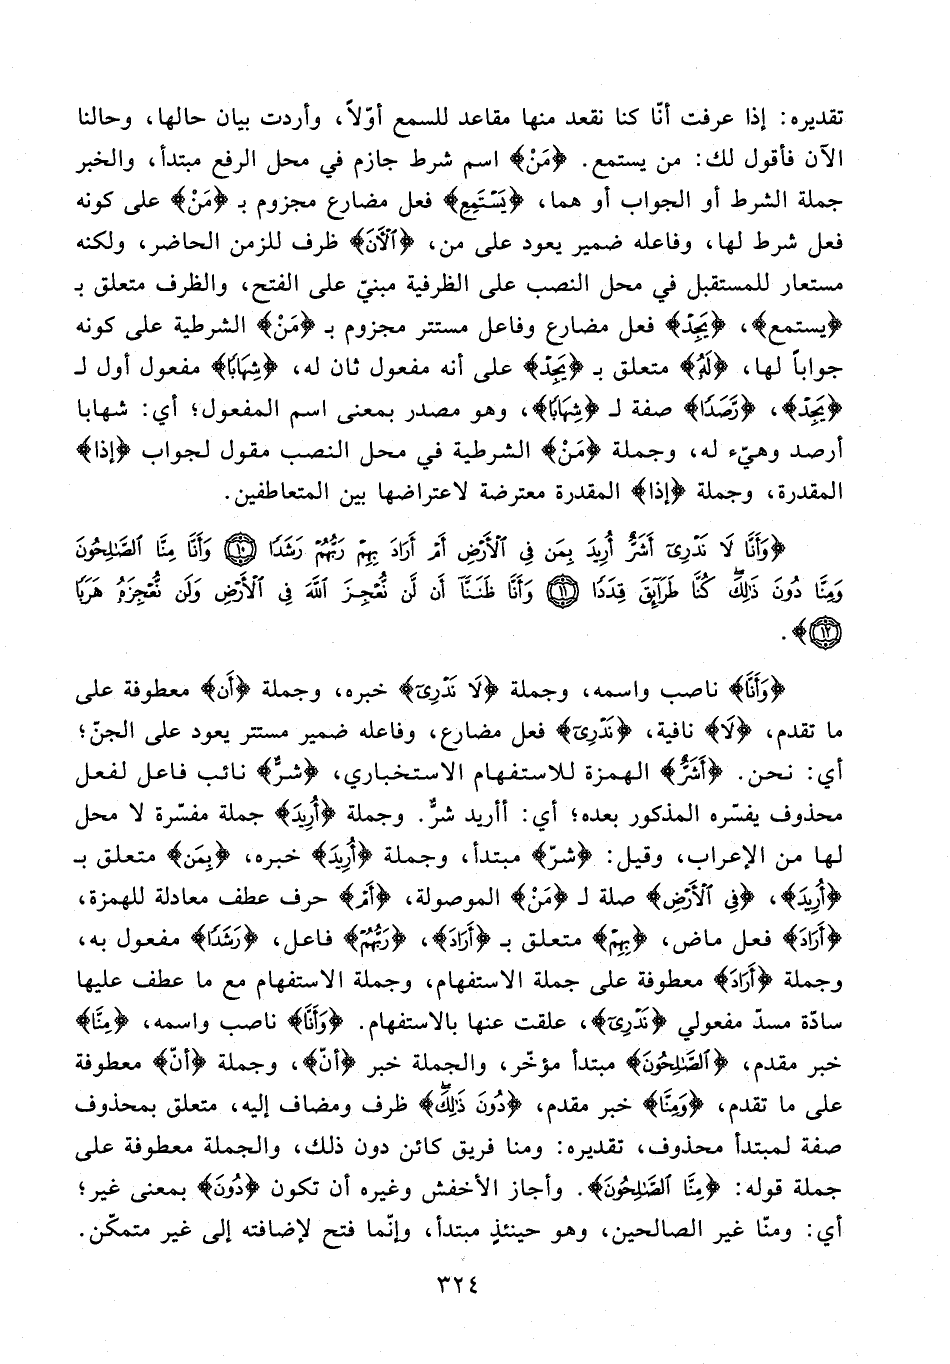 تقديره: إذا عرفت أنّا كنا نقعد منها مقاعد للسمع أوّلاً، وأردت بيان حالها، وحالنا
الآن فأقول لك: من يستمع. ﴿مَنْ﴾ اسم شرط جازم في محل الرفع مبتدأ، والخبر
جملة الشرط أو الجواب أو هما، ﴿يَسْتَمِعِ﴾ فعل مضارع مجزوم بـ ﴿مَنْ﴾ على كونه
فعل شرط لها، وفاعله ضمير يعود على من، ﴿ٱلْأَنَ﴾ ظرف للزمن الحاضر، ولكنه
مستعار للمستقبل في محل النصب على الظرفية مبنيّ على الفتح، والظرف متعلق بـ
﴿يستمع﴾، ﴿يَجِدْ﴾ فعل مضارع وفاعل مستتر مجزوم بـ ﴿مَنْ﴾ الشرطية على كونه
جواباً لها، ﴿لَهُ﴾ متعلق بـ ﴿يَجِدْ﴾ على أنه مفعول ثان له، ﴿شِهَابًا﴾ مفعول أول لـ
﴿يَجِدْ﴾، ﴿رَّصَدًا﴾ صفة لـ ﴿شِهَابًا﴾، وهو مصدر بمعنى اسم المفعول؛ أي: شهابا
أرصد وهيّء له، وجملة ﴿مَنْ﴾ الشرطية في محل النصب مقول لجواب ﴿إذا﴾
المقدرة، وجملة ﴿إذا﴾ المقدرة معترضة لاعتراضها بين المتعاطفين.
﴿وَأَنَّا لَا نَدْرِىٓ أَشَرٌّ أُرِيدَ بِمَن فِى ٱلْأَرْضِ أَمْ أَرَادَ بِهِمْ رَبُّهُمْ رَشَدًا ١٠ وَأَنَّا مِنَّا ٱلصَّـٰلِحُونَ
وَمِنَّا دُونَ ذَٰلِكَ ۖ كُنَّا طَرَآئِقَ قِدَدًا ١١ وَأَنَّا ظَنَنَّآ أَن لَّن نُّعْجِزَ ٱللَّهَ فِى ٱلْأَرْضِ وَلَن نُّعْجِزَهُۥ هَرَبًا
١٢﴾.
﴿وَأَنَّا﴾ ناصب واسمه، وجملة ﴿لَا نَدْرِىٓ﴾ خبره، وجملة ﴿أَن﴾ معطوفة على
ما تقدم، ﴿لَا﴾ نافية، ﴿نَدْرِىٓ﴾ فعل مضارع، وفاعله ضمير مستتر يعود على الجنّ؛
أي: نحن. ﴿أَشَرٌّ﴾ الهمزة للاستفهام الاستخباري، ﴿شرٌّ﴾ نائب فاعل لفعل
محذوف يفسّره المذكور بعده؛ أي: أأريد شرٌّ. وجملة ﴿أُرِيدَ﴾ جملة مفسّرة لا محل
لها من الإعراب، وقيل: ﴿شرّ﴾ مبتدأ، وجملة ﴿أُرِيدَ﴾ خبره، ﴿بِمَن﴾ متعلق بـ
﴿أُرِيدَ﴾، ﴿فِى ٱلْأَرْضِ﴾ صلة لـ ﴿مَنْ﴾ الموصولة، ﴿أَمْ﴾ حرف عطف معادلة للهمزة،
﴿أَرَادَ﴾ فعل ماض، ﴿بِهِمْ﴾ متعلق بـ ﴿أَرَادَ﴾، ﴿رَبُّهُمْ﴾ فاعل، ﴿رَشَدًا﴾ مفعول به،
وجملة ﴿أَرَادَ﴾ معطوفة على جملة الاستفهام، وجملة الاستفهام مع ما عطف عليها
سادّة مسدّ مفعولي ﴿نَدْرِىٓ﴾، علقت عنها بالاستفهام. ﴿وَأَنَّا﴾ ناصب واسمه، ﴿مِنَّا﴾
خبر مقدم، ﴿ٱلصَّـٰلِحُونَ﴾ مبتدأ مؤخّر، والجملة خبر ﴿أنّ﴾، وجملة ﴿أنّ﴾ معطوفة
على ما تقدم، ﴿وَمِنَّا﴾ خبر مقدم، ﴿دُونَ ذَٰلِكَ ۖ﴾ ظرف ومضاف إليه، متعلق بمحذوف
صفة لمبتدأ محذوف، تقديره: ومنا فريق كائن دون ذلك، والجملة معطوفة على
جملة قوله: ﴿مِنَّا ٱلصَّـٰلِحُونَ﴾. وأجاز الأخفش وغيره أن تكون ﴿دُونَ﴾ بمعنى غير؛
أي: ومنّا غير الصالحين، وهو حينئذٍ مبتدأ، وإنّما فتح لإضافته إلى غير متمكّن.
٣٢٤